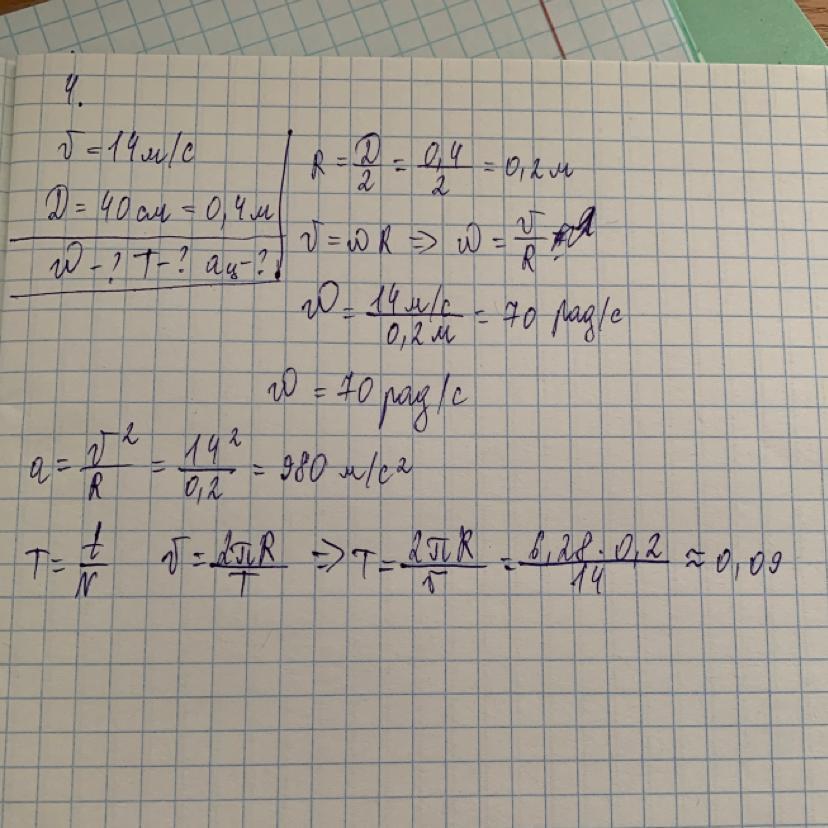 4.
v = 14 м/с
D = 40 см = 0,4 м
ω - ? T - ? aц - ?
R = D/2 = 0,4/2 = 0,2 м
v = ωR ⇒ ω = v/R
ω = 14 м/с / 0,2 м = 70 рад/с
ω = 70 рад/с
a = v²/R = 14²/0,2 = 980 м/с²
T = t/N v = 2πR/T ⇒ T = 2πR/v = 6,28 · 0,2/14 ≈ 0,09